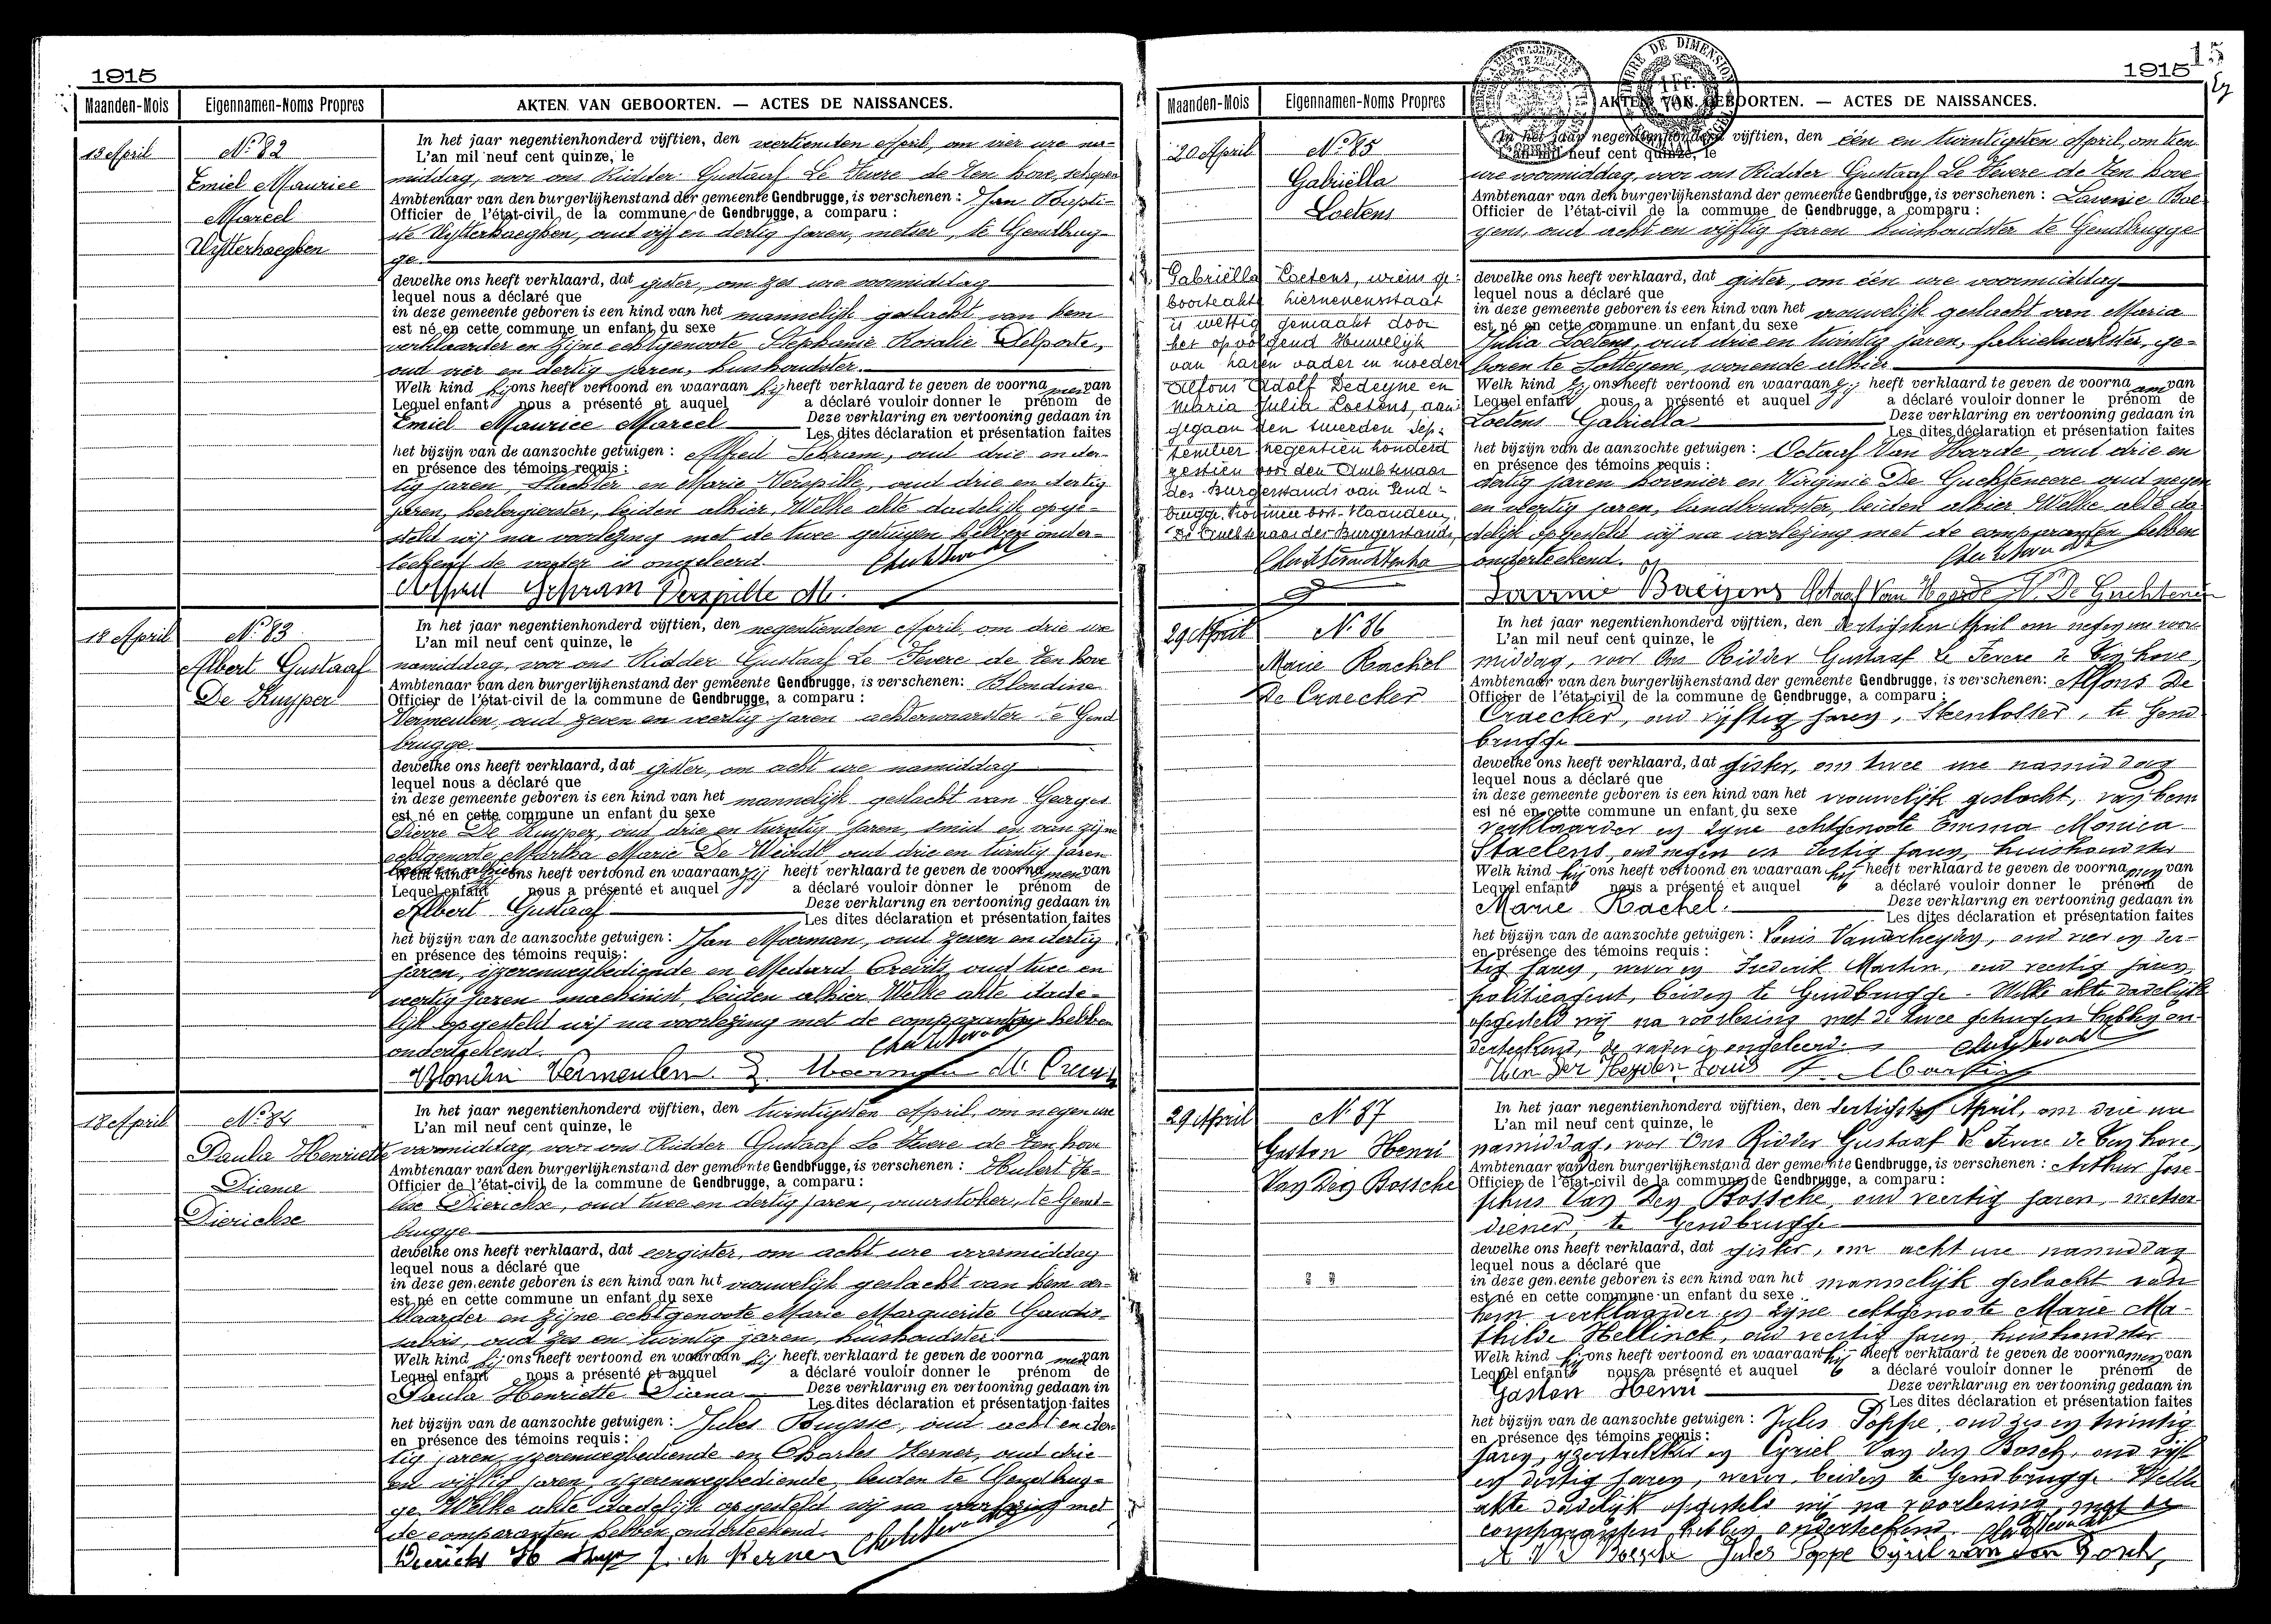 1915
Maanden-Mois Eigennamen-Noms Propres AKTEN VAN GEBOORTEN. — ACTES DE NAISSANCES.
13 April
No 82
Emiel Maurice
Marcel
Uytterhaeghen
In het jaar negentienhonderd vijftien, den veertienden April, om vier ure na-
L'an mil neuf cent quinze, le
middag, voor ons Ridder Gustaaf Le Fevere de Ten hove, schepen
Ambtenaar van den burgerlijkenstand der gemeente Gendbrugge, is verschenen : Jan Bapti-
Officier de l'état-civil de la commune de Gendbrugge, a comparu :
ste Uytterhaeghen, oud vijf en dertig jaren, metser, te Gendbrug-
ge.
dewelke ons heeft verklaard, dat gister, om zes ure voormiddag
lequel nous a déclaré que
in deze gemeente geboren is een kind van het mannelijk geslacht van hem
est né en cette commune un enfant du sexe
verklaarder en zijne echtgenoote Stephanie Rosalie Delporte,
oud vier en dertig jaren, huishoudster.
Welk kind hij ons heeft vertoond en waaraan hij heeft verklaard te geven de voorna men van
Lequel enfant nous a présenté et auquel a déclaré vouloir donner le prénom de
Emiel Maurice Marcel Deze verklaring en vertooning gedaan in
Les dites déclaration et présentation faites
het bijzijn van de aanzochte getuigen : Alfred Schram, oud drie en der-
en présence des témoins requis :
tig jaren, slachter en Marie Verspille, oud drie en dertig
jaren, herbergierster, beiden alhier. Welke akte dadelijk opge-
steld wij na voorlezing met de twee getuigen hebben onder-
teekend de vader is ongeleerd.
Alfred Schram Verspille M.
18 April
No 83
Albert Gustaaf
De Kuyper
In het jaar negentienhonderd vijftien, den negentienden April, om drie ure
L'an mil neuf cent quinze, le
namiddag, voor ons Ridder Gustaaf Le Fevere de Ten hove
Ambtenaar van den burgerlijkenstand der gemeente Gendbrugge, is verschenen: Blondine
Officier de l'état-civil de la commune de Gendbrugge, a comparu :
Vermeulen, oud zeven en veertig jaren achterwaarster te Gend
brugge.
dewelke ons heeft verklaard, dat gister, om acht ure namiddag
lequel nous a déclaré que
in deze gemeente geboren is een kind van het mannelijk geslacht van Georges
est né en cette commune un enfant du sexe
Pierre De Kuyper, oud drie en twintig jaren, smid en van zijne
echtgenoote Martha Marie De Weirdt, oud drie en twintig jaren
beiden alhier
Welk kind zij ons heeft vertoond en waaraan zij heeft verklaard te geven de voorna men van
Lequel enfant nous a présenté et auquel a déclaré vouloir donner le prénom de
Albert Gustaaf Deze verklaring en vertooning gedaan in
Les dites déclaration et présentation faites
het bijzijn van de aanzochte getuigen : Jan Moerman, oud zeven en dertig
en présence des témoins requis :
jaren, ijzerenwegbediende en Medard oud twee en
veertig jaren machinist, beiden alhier Welke akte dade-
lijk opgesteld wij na voorlezing met de comparanten hebben
onderteekend.
Blondin Vermeulen Moerman M.
18 April
No 84
Paula Henriette
Diana
Dierickse
In het jaar negentienhonderd vijftien, den twintigsten April, om negen ure
L'an mil neuf cent quinze, le
voormiddag, voor ons Ridder Gustaaf Le Fevere de Ten hove
Ambtenaar van den burgerlijkenstand der gemeente Gendbrugge, is verschenen :  Hubert
Officier de l'état-civil de la commune de Gendbrugge, a comparu :
Dierickse, oud twee en dertig jaren, vuurstoker, te Gend-
brugge
dewelke ons heeft verklaard, dat eergister, om acht ure voormiddag
lequel nous a déclaré que
in deze gemeente geboren is een kind van het vrouwelijk geslacht van hem ver-
est né en cette commune un enfant du sexe
klaarder en zijne echtgenoote Marie Marguerite
oud zes en twintig jaren, huishoudster.
Welk kind hij ons heeft vertoond en waaraan hij heeft verklaard te geven de voorna men van
Lequel enfant nous a présenté et auquel a déclaré vouloir donner le prénom de
Paula Henriette Diana Deze verklaring en vertooning gedaan in
Les dites déclaration et présentation faites
het bijzijn van de aanzochte getuigen : Jules Buysse, oud acht en der-
en présence des témoins requis :
tig jaren, yzerenwegbediende en Charles Kerner, oud drie
en vijftig jaren, yzerenwegbediende, beiden te Gendbrug-
ge. Welke akte dadelijk opgesteld wij na voorlezing met
de comparanten hebben onderteekend.
Kerner
1915
15
Maanden-Mois Eigennamen-Noms Propres AKTEN VAN GEBOORTEN. — ACTES DE NAISSANCES.
20 April
No 85
Gabriëlla
Loetens
Gabriëlla Loetens, wiens ge-
boorteakte hiernevensstaat
is wettig gemaakt door
het opvolgend Huwelijk
van haren vader en moeder
Alfons Adolf Dedeyne en
Maria Julia Loetens, aan-
gegaan den tweeden Sep-
tember negentien honderd
zestien voor den Ambtenaar
des Burgerstands van Gend-
brugge, Provincie Oost-Vlaanderen.
De Ambtenaar des Burgerstands,
In het jaar negentienhonderd vijftien, den één en twintigsten April, om tien
L'an mil neuf cent quinze, le
ure voormiddag, voor ons Ridder Gustaaf Le Fevere de Ten hove
Ambtenaar van den burgerlijkenstand der gemeente Gendbrugge, is verschenen : Lavenie Bae-
Officier de l'état-civil de la commune de Gendbrugge, a comparu :
yens, oud acht en vijftig jaren huishoudster te Gendbrugge
dewelke ons heeft verklaard, dat gister, om één ure voormiddag
lequel nous a déclaré que
in deze gemeente geboren is een kind van het vrouwelijk geslacht van Maria
est né en cette commune un enfant du sexe
Julia Loetens, oud drie en twintig jaren, fabriekwerkster, ge-
boren te Sottegem, wonende alhier
Welk kind zij ons heeft vertoond en waaraan zij heeft verklaard te geven de voorna am van
Lequel enfant nous a présenté et auquel a déclaré vouloir donner le prénom de
Loetens Gabriella Deze verklaring en vertooning gedaan in
Les dites déclaration et présentation faites
het bijzijn van de aanzochte getuigen : Octaaf Van Hoorde, oud drie en
en présence des témoins requis :
dertig jaren hovenier en Virginie De Guchteneere oud negen
en veertig jaren, landbouwster, beiden alhier Welke akte da-
delijk opgesteld wij na voorlezing met de comparanten hebben
onderteekend.
Baeyens Octaaf Van Hoorde V. De Guchteneir
29 April
No 86
Marie Rachel
De Craecker
In het jaar negentienhonderd vijftien, den dertigsten April om negen ure voor-
L'an mil neuf cent quinze, le
middag, voor Ons Ridder Gustaaf Le Fevere de Ten hove,
Ambtenaar van den burgerlijkenstand der gemeente Gendbrugge, is verschenen: Alfons De
Officier de l'état-civil de la commune de Gendbrugge, a comparu :
Craecker, oud vijftig jaren, te Gend
brugge
dewelke ons heeft verklaard, dat gister, om twee ure namiddag
lequel nous a déclaré que
in deze gemeente geboren is een kind van het vrouwelijk geslacht, van hem
est né en cette commune un enfant du sexe
verklaarder en zyne echtgenoote Emma Monica
Staelens, oud negen en dertig jaren, huishoudster
Welk kind hij ons heeft vertoond en waaraan hij heeft verklaard te geven de voorna men van
Lequel enfant nous a présenté et auquel a déclaré vouloir donner le prénom de
Marie Rachel. Deze verklaring en vertooning gedaan in
Les dites déclaration et présentation faites
het bijzijn van de aanzochte getuigen : Louis Vanderheyden, oud vier en der-
en présence des témoins requis :
tig jaren, wever en Frederik Martin, oud veertig jaren,
politieagent, beiden te Gendbrugge. Welke akte dadelijk
opgesteld wij na voorlezing met de twee getuigen hebben on-
derteekend, de vader is ongeleerd.
Van Der Heyden Louis F. Martin
29 April
No 87
Gaston Henri
Van Den Bossche
In het jaar negentienhonderd vijftien, den dertigsten April, om drie ure
L'an mil neuf cent quinze, le
namiddag, voor Ons Ridder Gustaaf Le Fevere de Ten hove,
Ambtenaar van den burgerlijkenstand der gemeente Gendbrugge, is verschenen : Arthur Jose-
Officier de l'état-civil de la commune de Gendbrugge, a comparu :
phus Van Den Bossche, oud veertig jaren, metser
diener, te Gendbrugge
dewelke ons heeft verklaard, dat gister, om acht ure namiddag
lequel nous a déclaré que
in deze gemeente geboren is een kind van het mannelijk geslacht van
est né en cette commune un enfant du sexe
hem verklaarder en zyne echtgenoote Marie Ma-
thilde Hellinck, oud veertig jaren, huishoudster
Welk kind hij ons heeft vertoond en waaraan hij heeft verklaard te geven de voorna men van
Lequel enfant nous a présenté et auquel a déclaré vouloir donner le prénom de
Gaston Henri Deze verklaring en vertooning gedaan in
Les dites déclaration et présentation faites
het bijzijn van de aanzochte getuigen : Jules Poppe, oud zes en twintig
en présence des témoins requis :
jaren, en Cyriel Van den Bosch, oud vijf
en dertig jaren, wever, beiden te Gendbrugge. Welke
akte dadelijk opgesteld wij na voorlezing met de
comparanten hebben onderteekend.
A V D Bossche Jules Poppe Cyriel van den Bosch